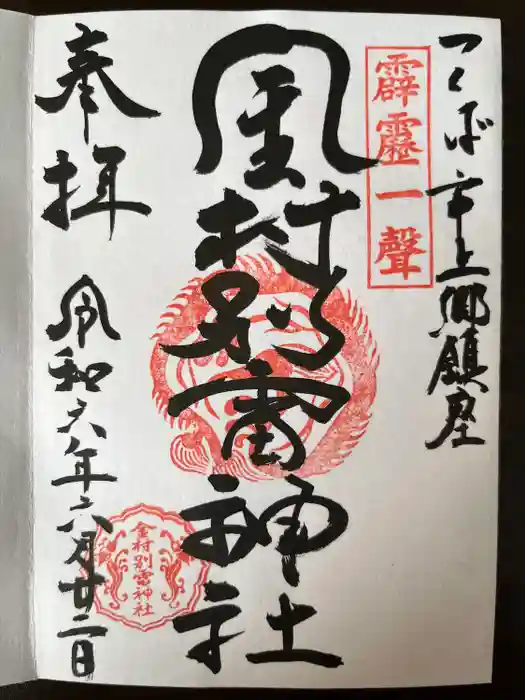 つくば市上郷鎮座
霹靂一聲
金村別雷神社
奉拝
令和六年六月廿二日
金村別雷神社